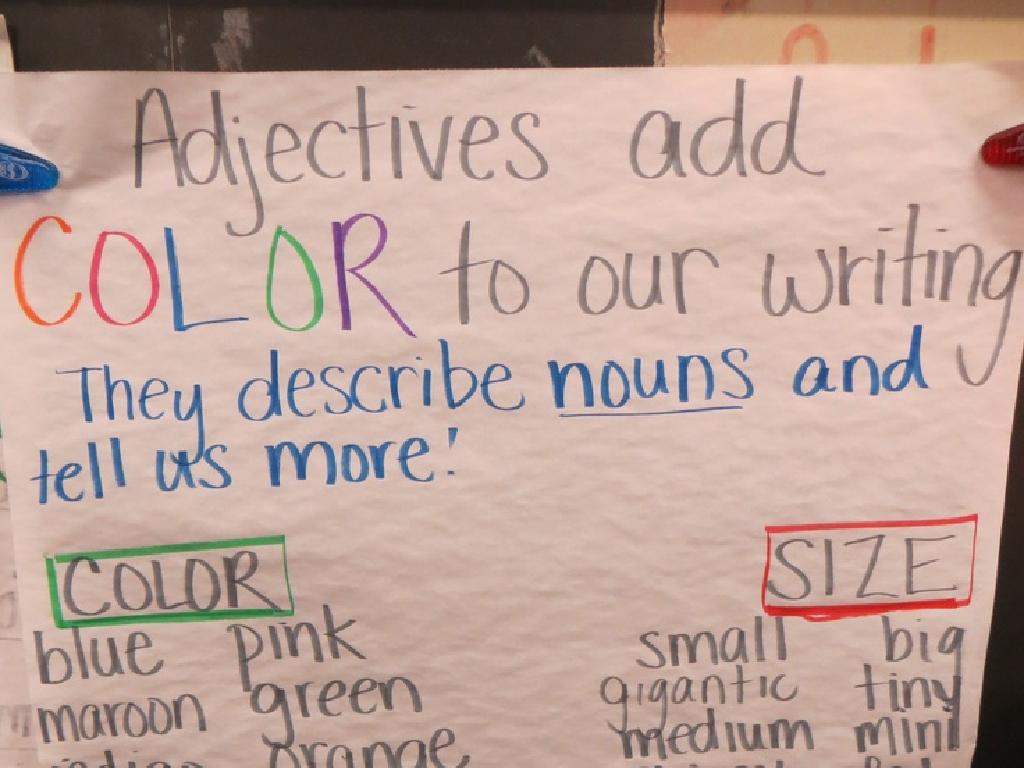 Adjectives add
COLOR to our writing
They describe nouns and
tell us more!
COLOR
SIZE
blue pink
small big
maroon green
gigantic tiny
orange
medium mini